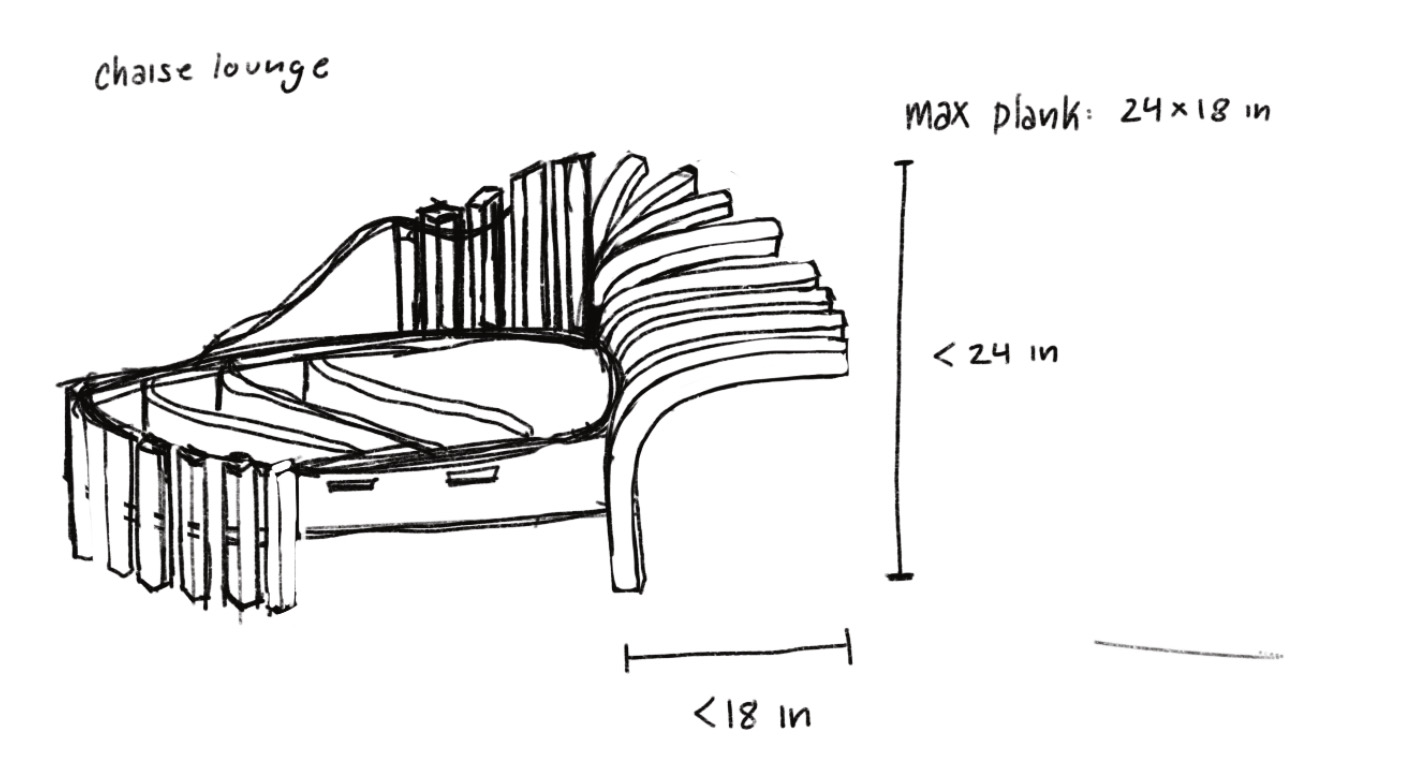 chaise lounge
max plank: 24x18 in
< 24 in
<18 in